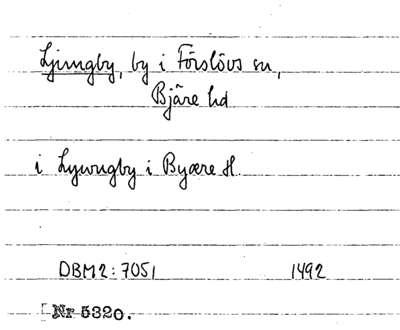 Ljungby, by i Förslövs sn,
Bjäre hd
i Lywngby i Byære H.
DBM2: 7051 1492
[Nr 5320.